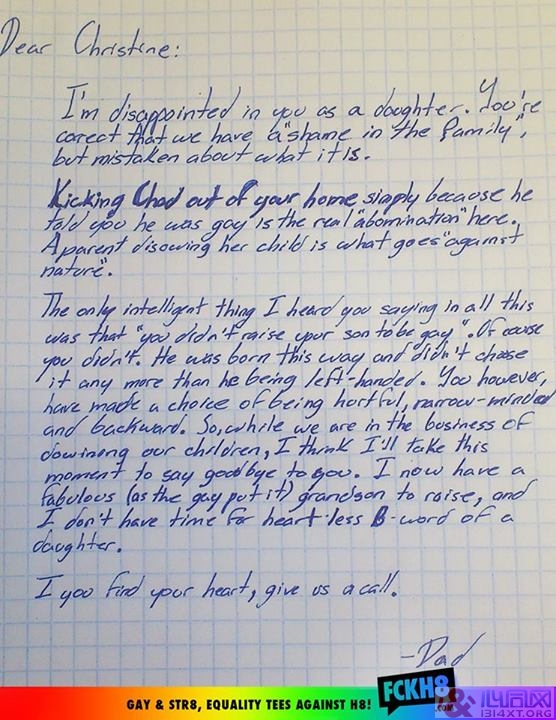 Dear Christine:
I'm disappointed in you as a daughter. You're
corect that we have a "shame in the family",
but mistaken about what it is.
Kicking Chad out of your home simply because he
told you he was gay is the real "abomination" here.
A parent disowing her child is what goes "against
nature".
The only intelligent thing I heard you saying in all this
was that "you didn't raise your son to be gay". Of course
you didn't. He was born this way and didn't choose
it any more than he being left-handed. You however,
have made a choice of being hurtful, narrow-minded
and backward. So, while we are in the business of
dowinong our children, I think I'll take this
moment to say goodbye to you. I now have a
fabulous (as the gay put it) grandson to raise, and
I don't have time for heart-less B-word of a
daughter.
I you find your heart, give us a call.
-Dad
GAY & STR8, EQUALITY TEES AGAINST H8!
FCKH8
.COM
心同网
1314XT.ORG